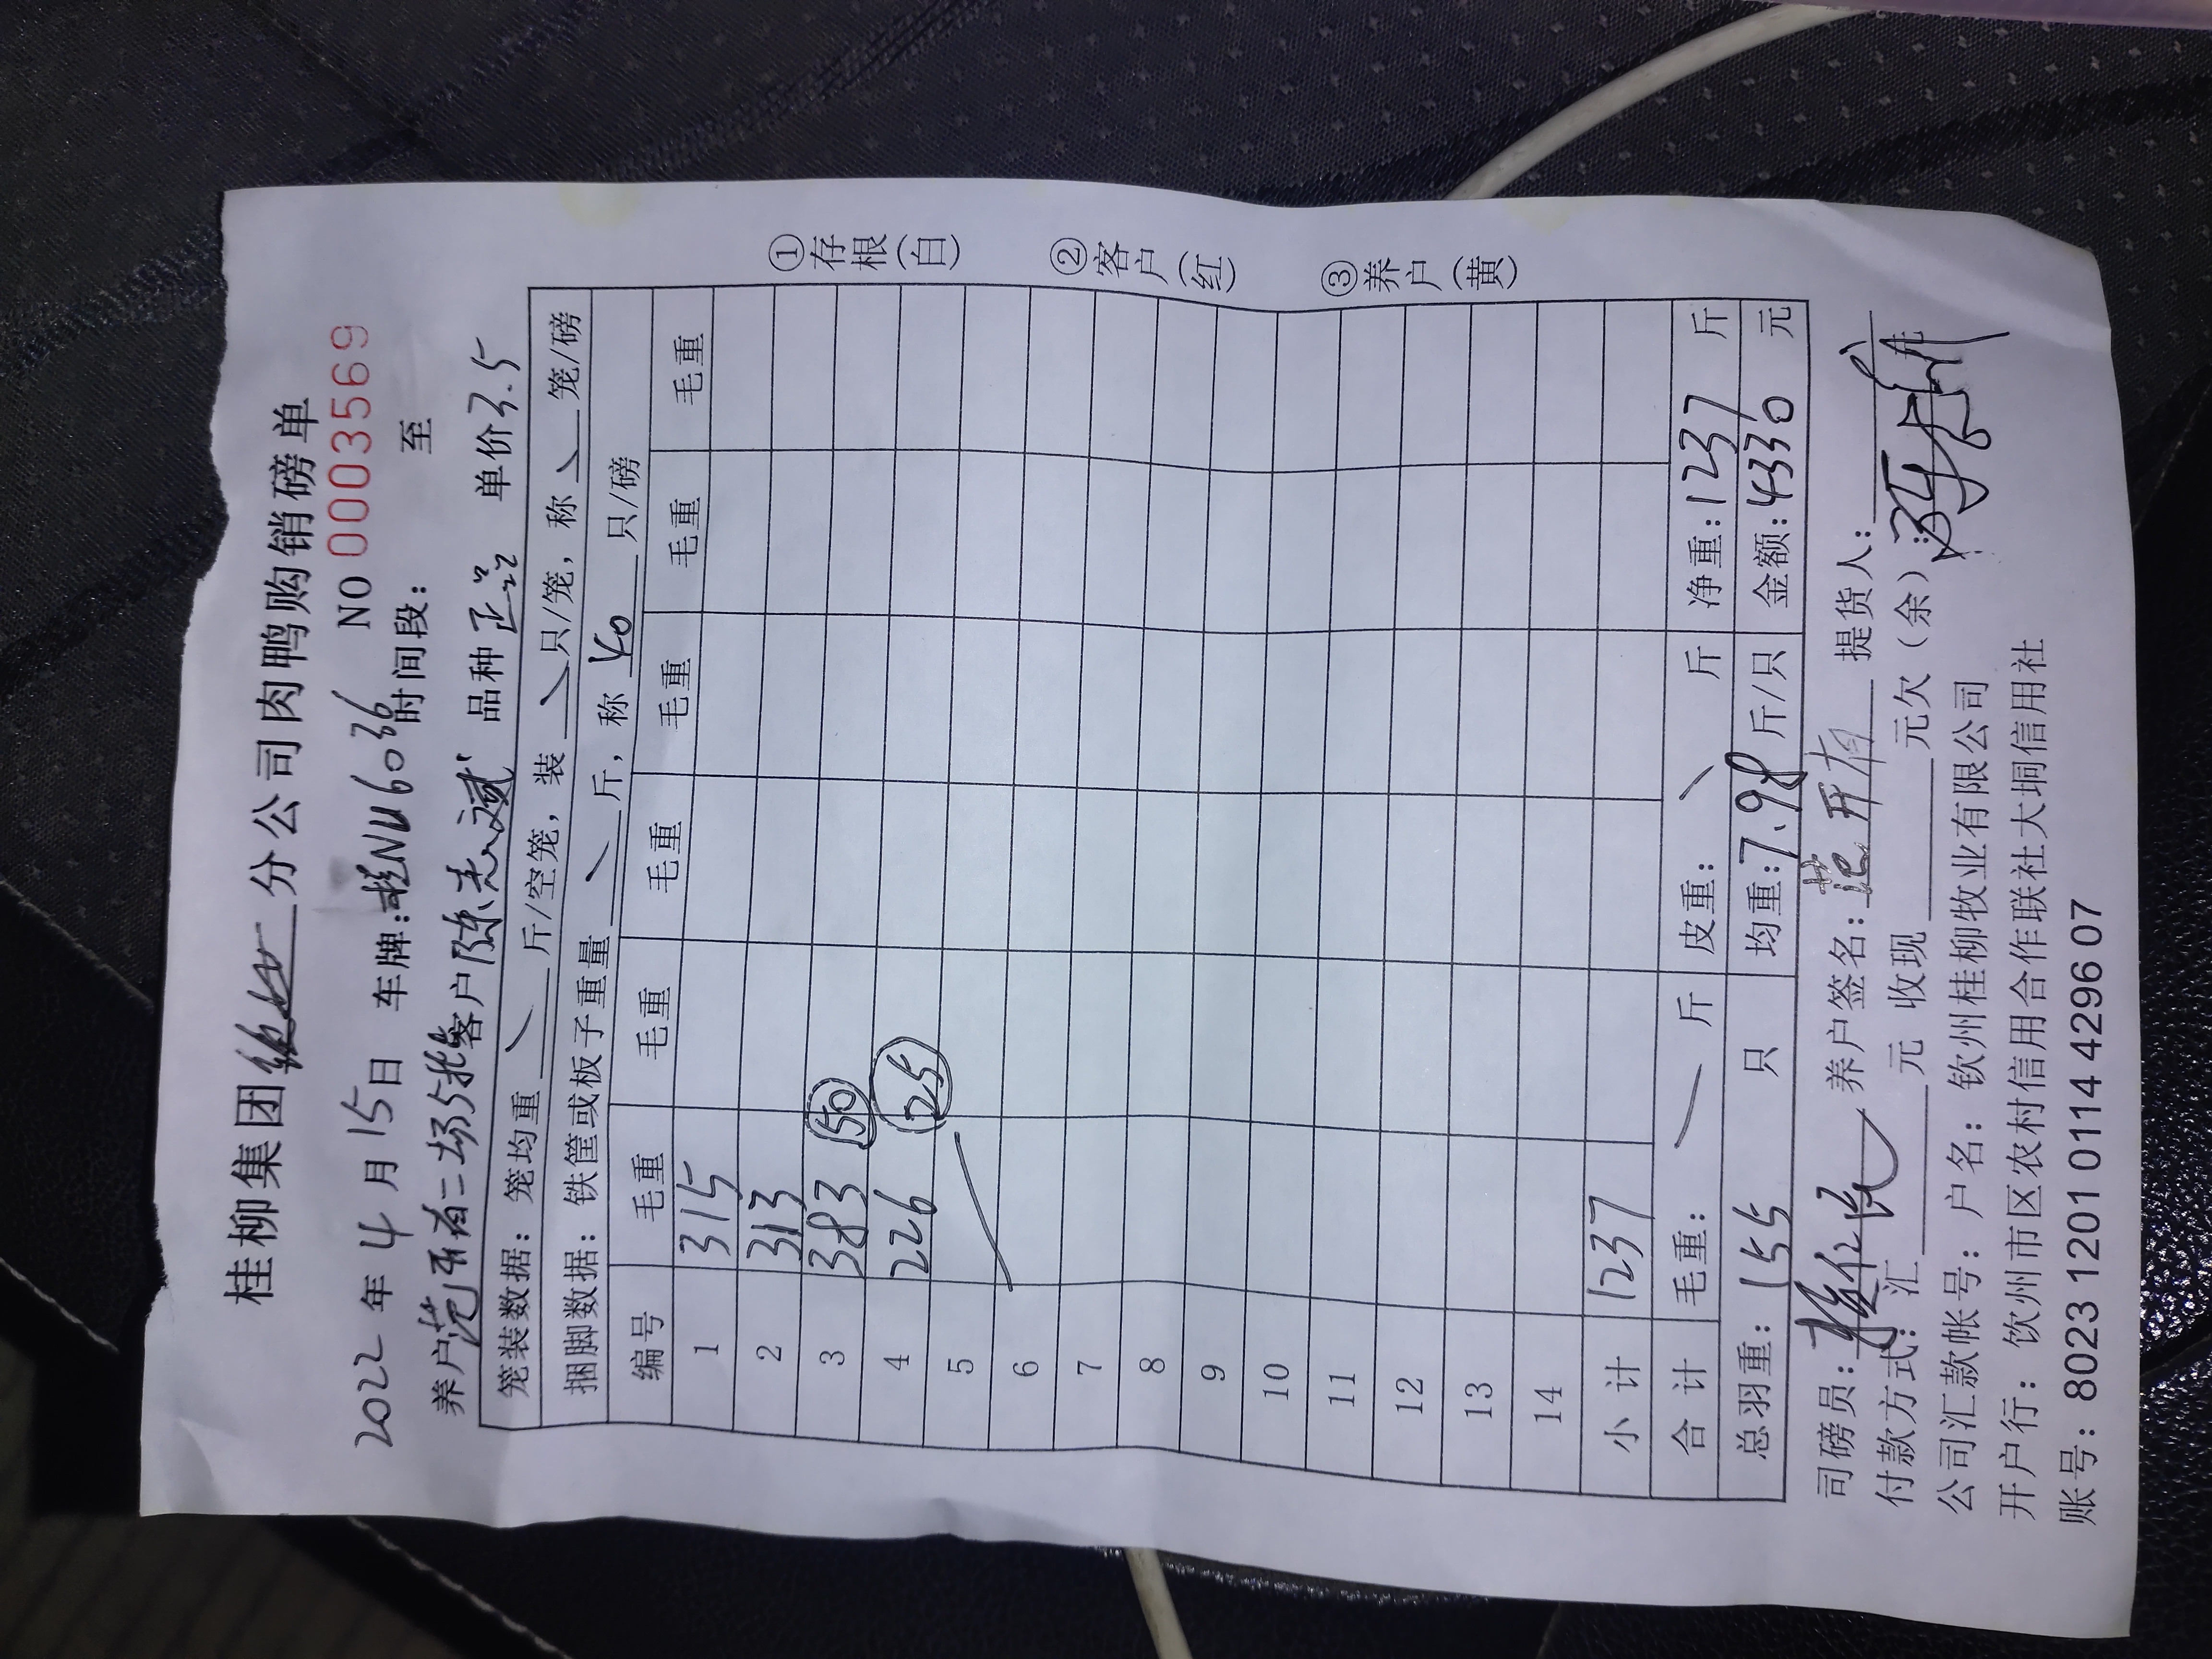 桂柳集团 分公司肉鸭购销磅单
2022年4月15日 车牌:桂NU6036 NO 0003569
时间段: 至
养户范开首二场35批 客户陈志斌 品种正品 单价3.5
笼装数据:笼均重 斤/空笼,装 只/笼,称 笼/磅
捆脚数据:铁筐或板子重量 斤,称 40 只/磅
编号 毛重 毛重 毛重 毛重 毛重 毛重
1 315
2 313
3 383 50
4 226 25
5
6
7
8
9
10
11
12
13
14
小计 1237
合计 毛重: 斤 皮重: 斤 净重:1237 斤
总羽重:155 只 均重:7.98 斤/只 金额:4330 元
①存根(白)
②客户(红)
③养户(黄)
司磅员: 养户签名:范开 提货人:
付款方式:汇 元 收现 元欠(余):
公司汇款帐号:户名:钦州桂柳牧业有限公司
开户行:饮州市区农村信用合作联社大垌信用社
账号:8023 1201 0114 4296 07